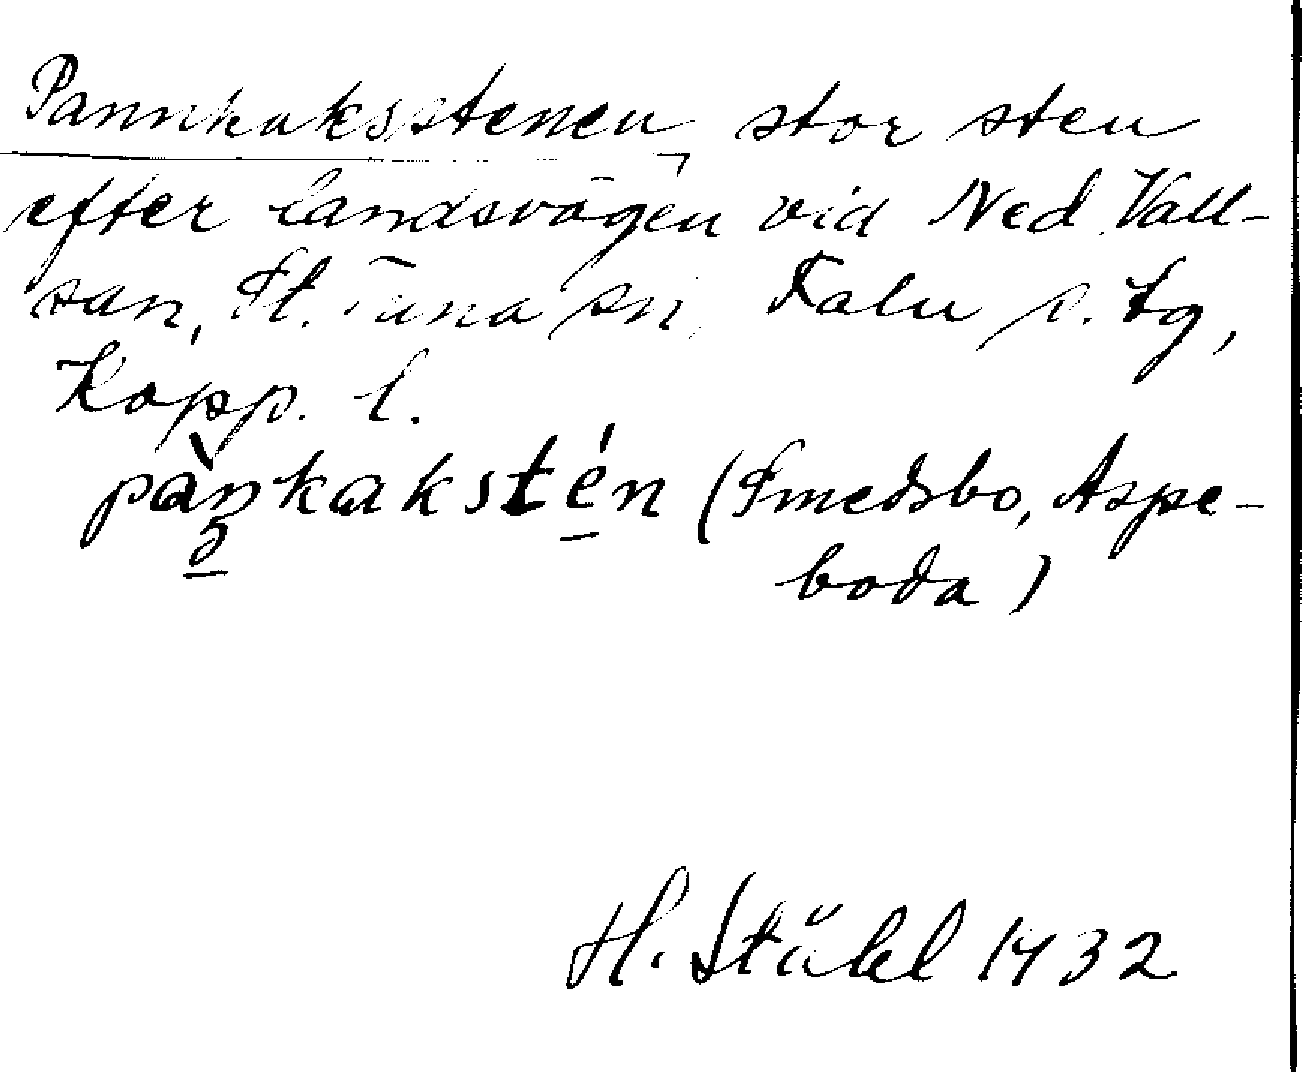 Pannkaksstenen, stor sten
efter landsvägen vid Ned. Vall-
san, St. Tuna sn, Falu s. tg,
Kopp. l.
pànkakstén (Smedsbo, Aspe-
boda)
H. Ståhl 1932